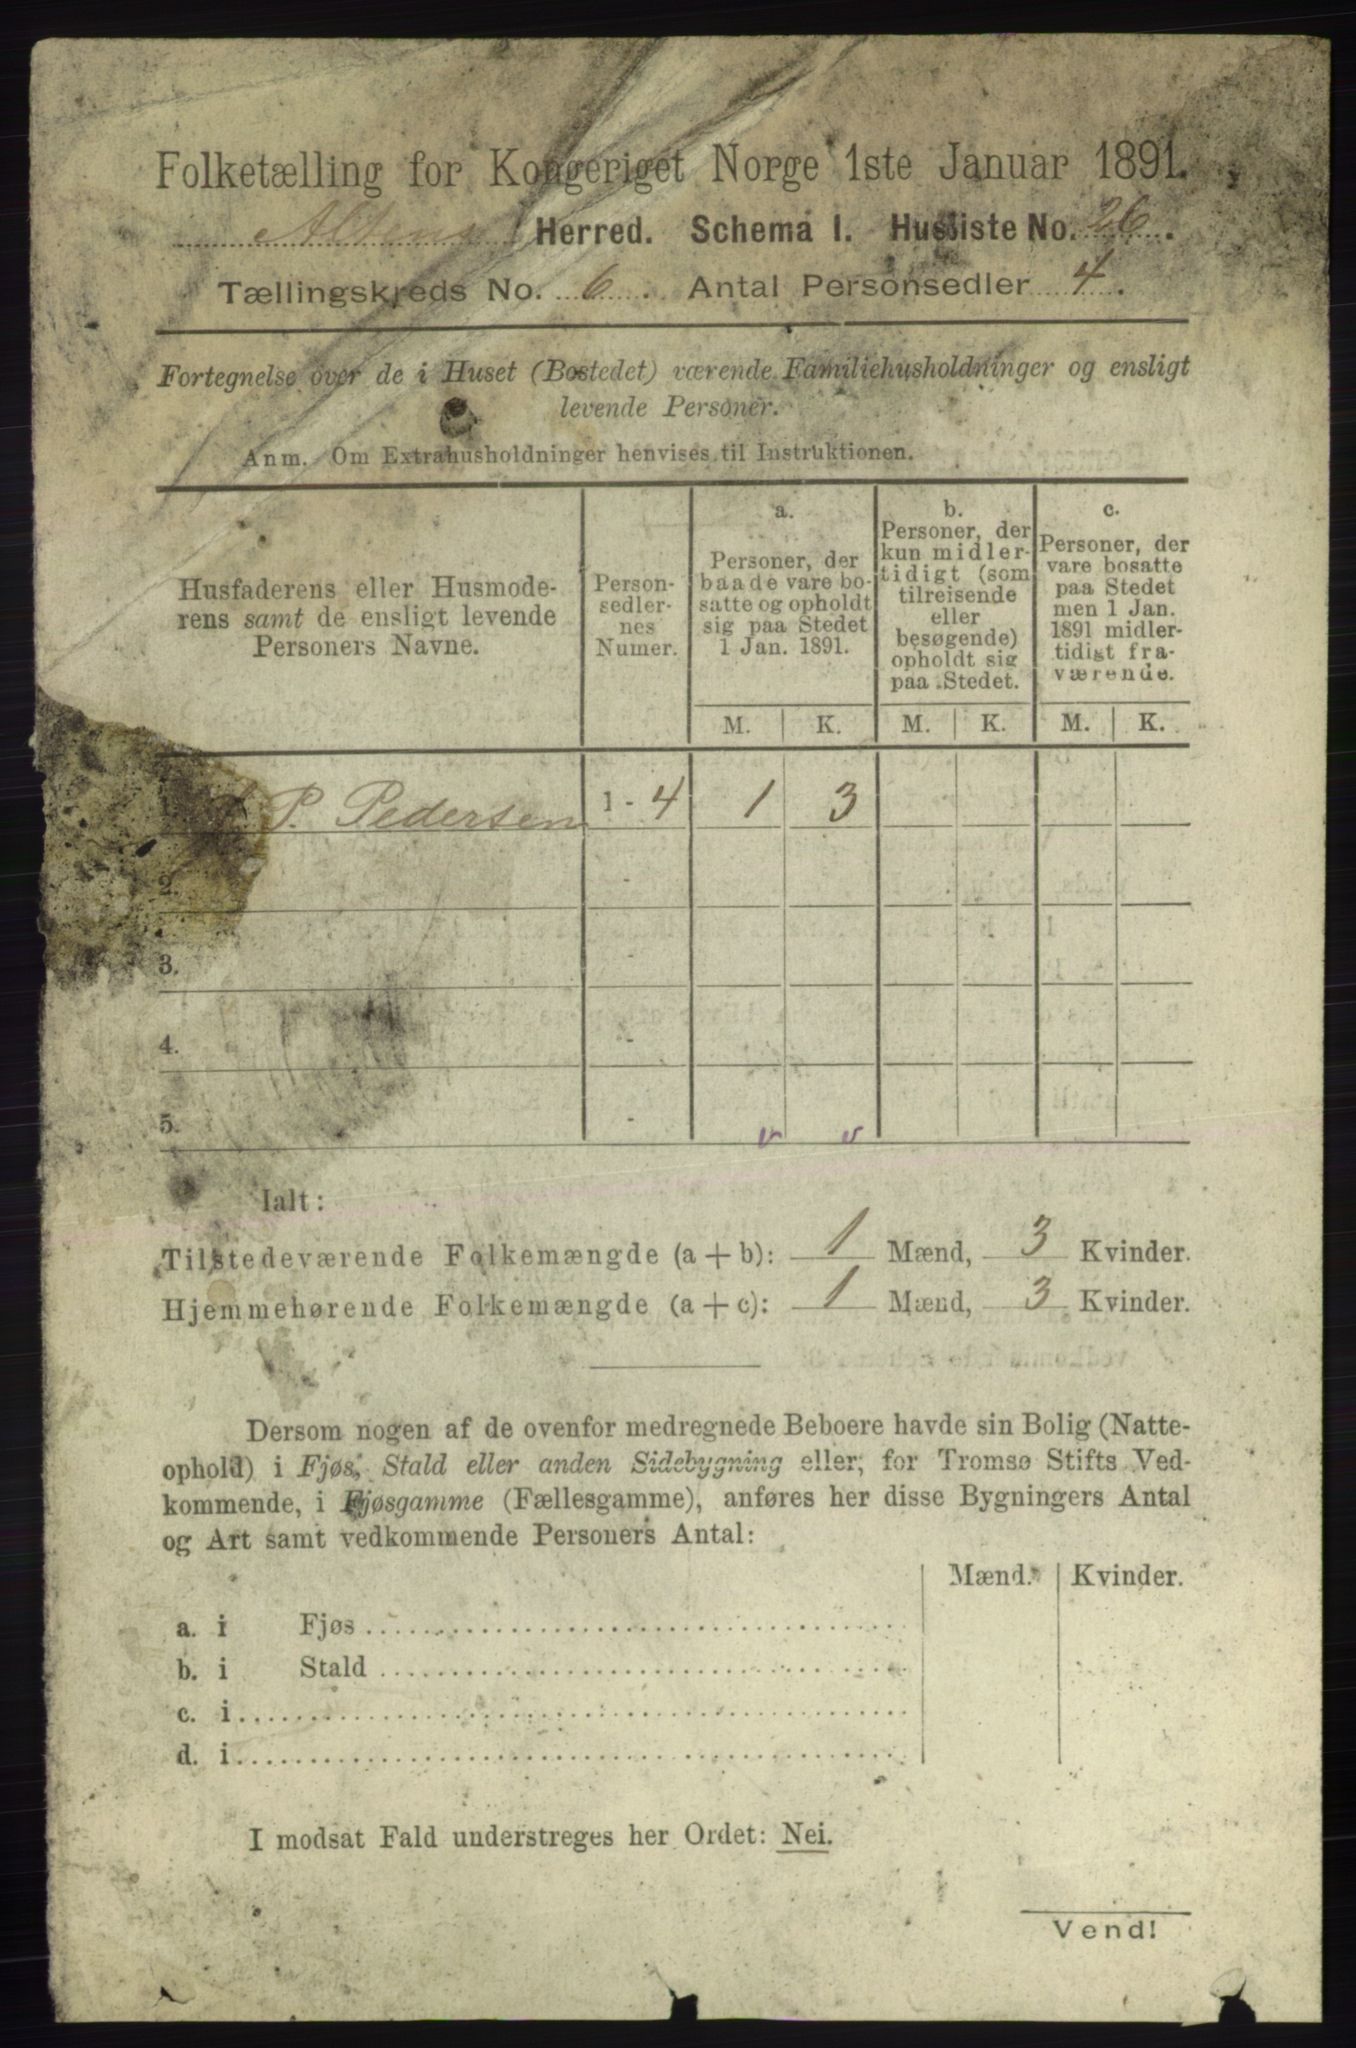 Folketælling for Kongeriget Norge 1ste Januar 1891.
Altens Herred. Schema I. Husliste No. 26.
Tællingskreds No. 6. Antal Personsedler 4.
Fortegnelse over de i Huset (Bostedet) værende Familiehusholdninger og ensligt
levende Personer.
Anm. Om Extrahusholdninger henvises til Instruktionen.
Husfaderens eller Husmode-
rens samt de ensligt levende
Personers Navne.
Person-
sedler-
nes
Numer.
a.
Personer, der
baade vare bo-
satte og opholdt
sig paa Stedet
1 Jan. 1891.
b.
Personer, der
kun midler-
tidigt (som
tilreisende
eller
besøgende)
opholdt sig
paa Stedet.
c.
Personer, der
vare bosatte
paa Stedet
men 1 Jan.
1891 midler-
tidigt fra-
værende.
M. K. M. K. M. K.
P. Pedersen 1 - 4 1 3
2. -
3. -
4. -
5. -
Ialt:
Tilstedeværende Folkemængde (a + b): 1 Mænd, 3 Kvinder.
Hjemmehørende Folkemængde (a + c): 1 Mænd, 3 Kvinder.
Dersom nogen af de ovenfor medregnede Beboere havde sin Bolig (Natte-
ophold) i Fjøs, Stald eller anden Sidebygning eller, for Tromsø Stifts Ved-
kommende, i Fjøsgamme (Fællesgamme), anføres her disse Bygningers Antal
og Art samt vedkommende Personers Antal:
Mænd. Kvinder.
a. i Fjøs
b. i Stald
c. i
d. i
I modsat Fald understreges her Ordet: Nei.
Vend!